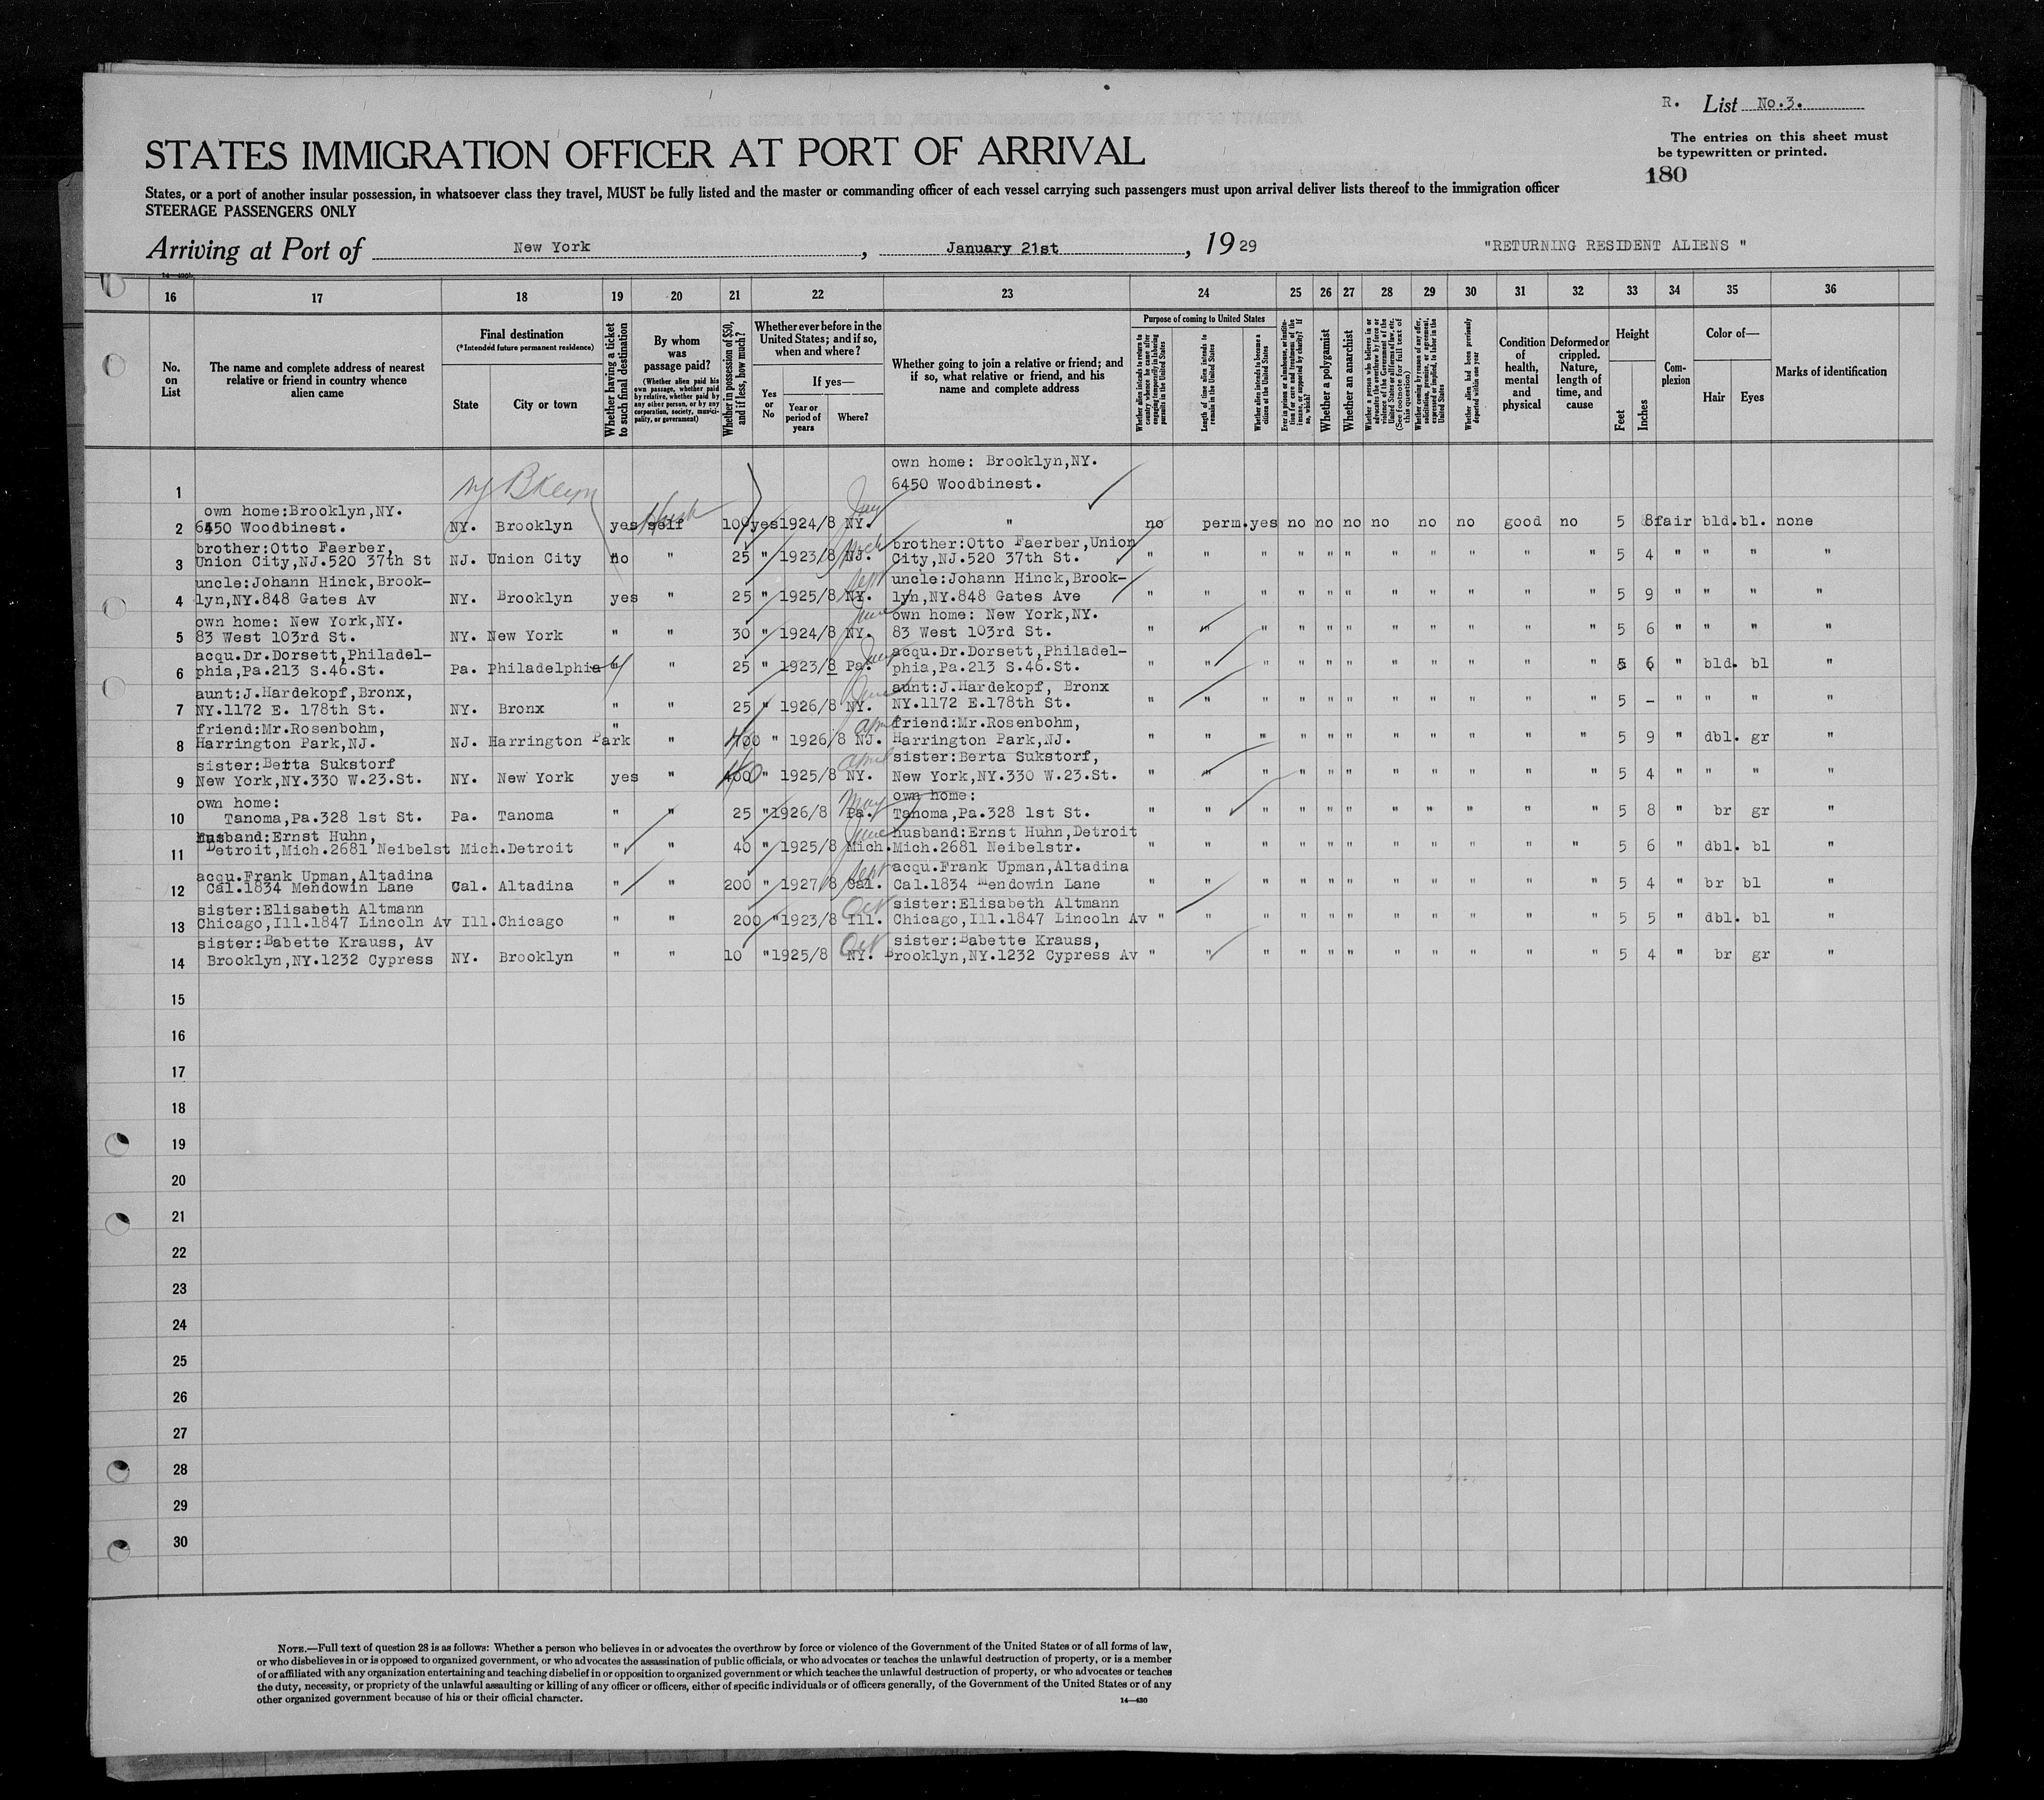 R. List No.3.
The entries on this sheet must
be typewritten or printed.
180
STATES IMMIGRATION OFFICER AT PORT OF ARRIVAL
States, or a port of another insular possession, in whatsoever class they travel, MUST be fully listed and the master or commanding officer of each vessel carrying such passengers must upon arrival deliver lists thereof to the immigration officer
STEERAGE PASSENGERS ONLY
Arriving at Port of New York, January 21st, 1929 "RETURNING RESIDENT ALIENS "
14—430
16 17 18 19 20 21 22 23 24 25 26 27 28 29 30 31 32 33 34 35 36
No. on List
The name and complete address of nearest relative or friend in country whence alien came
Final destination
(*Intended future permanent residence)
State
City or town
Whether having a ticket to such final destination
By whom was passage paid?
(Whether alien paid his own passage, whether paid by relative, whether paid by any other person, or by any corporation, society, municipality, or government)
Whether in possession of $50, and if less, how much?
Whether ever before in the United States; and if so, when and where?
Yes or No
If yes—
Year or period of years
Where?
Whether going to join a relative or friend; and if so, what relative or friend, and his name and complete address
Purpose of coming to United States
Whether alien intends to return to country whence he came after engaging temporarily in laboring pursuits in the United States
Length of time alien intends to remain in the United States
Whether alien intends to become a citizen of the United States
Ever in prison or almshouse, or institution for care and treatment of the insane, or supported by charity? If so, which?
Whether a polygamist
Whether an anarchist
Whether a person who believes in or advocates the overthrow by force or violence of the Government of the United States or all forms of law, etc. (See footnote for full text of this question)
Whether coming by reason of any offer, solicitation, promise, or agreement, expressed or implied, to labor in the United States
Whether alien had been previously deported within one year
Condition of health, mental and physical
Deformed or crippled. Nature, length of time, and cause
Height
Feet
Inches
Com-plexion
Color of—
Hair
Eyes
Marks of identification
1 NY Bklyn own home: Brooklyn,NY.
6450 Woodbinest.
own home:Brooklyn,NY.
2 6450 Woodbinest. NY. Brooklyn yes self 100 yes 1924/8 NY. " no perm. yes no no no no no no good no 5 8 fair bld. bl. none
brother:Otto Faerber, brother:Otto Faerber,Union
3 Union City,NJ.520 37th St NJ. Union City no " 25 " 1923/8 NJ. City,NJ.520 37th St. " " " " " " " " " " " 5 4 " " " "
uncle:Johann Hinck,Brook- Sept uncle:Johann Hinck,Brook-
4 lyn,NY.848 Gates Av NY. Brooklyn yes " 25 " 1925/8 NY. lyn,NY.848 Gates Ave " " " " " " " " " " " 5 9 " " " "
own home: New York,NY. June own home: New York,NY.
5 83 West 103rd St. NY. New York " " 30 " 1924/8 NY. 83 West 103rd St. " " " " " " " " " " " 5 6 " " " "
acqu.Dr.Dorsett,Philadel- acqu.Dr.Dorsett,Philadel-
6 phia,Pa.213 S.46.St. Pa. Philadelphia " " 25 " 1923/8 Pa. phia,Pa.213 S.46.St. " " " " " " " " " " " 5 6 " bld. bl "
aunt:J.Hardekopf,Bronx, June aunt:J.Hardekopf, Bronx
7 NY.1172 E. 178th St. NY. Bronx " " 25 " 1926/8 NY. NY.1172 E.178th St. " " " " " " " " " " " 5 - " " " "
friend:Mr.Rosenbohm, April friend:Mr.Rosenbohm,
8 Harrington Park,NJ. NJ. Harrington Park " " 400 " 1926/8 NJ. Harrington Park,NJ. " " " " " " " " " " " 5 9 " dbl. gr "
sister:Berta Sukstorf April sister:Berta Sukstorf,
9 New York,NY.330 W.23.St. NY. New York yes " 400 " 1925/8 NY. New York,NY.330 W.23.St. " " " " " " " " " " " 5 4 " " " "
own home: May own home:
10 Tanoma,Pa.328 1st St. Pa. Tanoma " " 25 " 1926/8 Pa. Tanoma,Pa.328 1st St. " " " " " " " " " " " 5 8 " br gr "
husband:Ernst Huhn, June husband:Ernst Huhn,Detroit
11 Detroit,Mich.2681 Neibelst Mich. Detroit " " 40 " 1925/8 Mich. Mich.2681 Neibelstr. " " " " " " " " " " " 5 6 " dbl. bl "
acqu.Frank Upman,Altadina Sept acqu.Frank Upman,Altadina
12 Cal.1834 Mendowin Lane Cal. Altadina " " 200 " 1927/8 Cal. Cal.1834 Mendowin Lane " " " " " " " " " " " 5 4 " br bl "
sister:Elisabeth Altmann Oct sister:Elisabeth Altmann
13 Chicago,Ill.1847 Lincoln Av Ill. Chicago " " 200 " 1923/8 Ill. Chicago,Ill.1847 Lincoln Av " " " " " " " " " " " 5 5 " dbl. bl "
sister:Babette Krauss, Av Oct sister:Babette Krauss,
14 Brooklyn,NY.1232 Cypress NY. Brooklyn " " 10 " 1925/8 NY. Brooklyn,NY.1232 Cypress Av " " " " " " " " " " " 5 4 " br gr "
15
16
17
18
19
20
21
22
23
24
25
26
27
28
29
30
NOTE.—Full text of question 28 is as follows: Whether a person who believes in or advocates the overthrow by force or violence of the Government of the United States or of all forms of law,
or who disbelieves in or is opposed to organized government, or who advocates the assassination of public officials, or who advocates or teaches the unlawful destruction of property, or is a member
of or affiliated with any organization entertaining and teaching disbelief in or opposition to organized government or which teaches the unlawful destruction of property, or who advocates or teaches
the duty, necessity, or propriety of the unlawful assaulting or killing of any officer or officers, either of specific individuals or of officers generally, of the Government of the United States or of any
other organized government because of his or their official character.
14—430